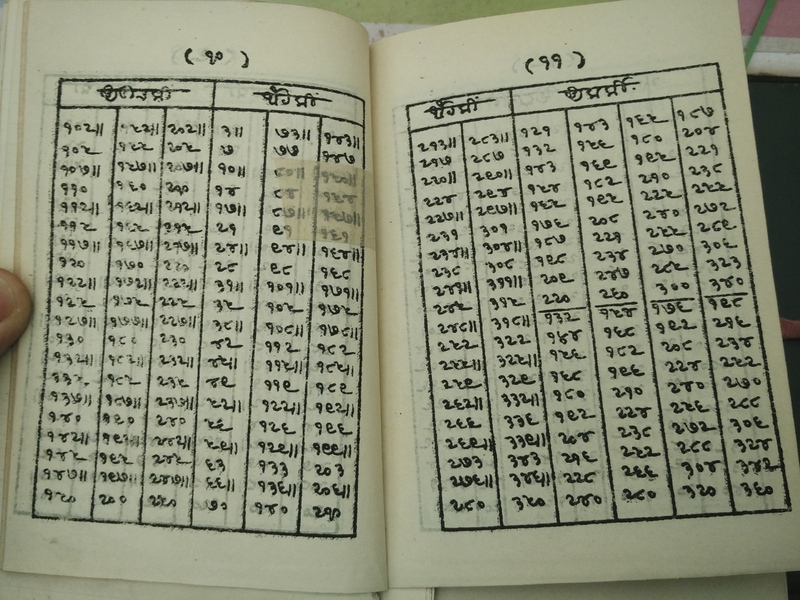 (१०)
१०२॥ १५२॥ २०२॥ ३॥ ७३॥ १४३॥
१०५ १५५ २०५ ७ ७७ १४७
१०७॥ १५७॥ २०७॥ १०॥ ८०॥ १५०॥
११० १६० २१० १४ ८४ १५४
११२॥ १६२॥ २१२॥ १७॥ ८७॥ १५७॥
११५ १६५ २१५ २१ ९१ १६१
११७॥ १६७॥ २१७॥ २४॥ ९४॥ १६४॥
१२० १७० २२० २८ ९८ १६८
१२२॥ १७२॥ २२२॥ ३१॥ १०१॥ १७१॥
१२५ १७५ २२५ ३५ १०५ १७५
१२७॥ १७७॥ २२७॥ ३८॥ १०८॥ १७८॥
१३० १८० २३० ४२ ११२ १८२
१३२॥ १८२॥ २३२॥ ४५॥ ११५॥ १८५॥
१३५ १८५ २३५ ४९ ११९ १८९
१३७॥ १८७॥ २३७॥ ५२॥ १२२॥ १९२॥
१४० १९० २४० ५६ १२६ १९६
१४२॥ १९२॥ २४२॥ ५९॥ १२९॥ १९९॥
१४५ १९५ २४५ ६३ १३३ २०३
१४७॥ १९७॥ २४७॥ ६६॥ १३६॥ २०६॥
१५० २०० २५० ७० १४० २१०
(११)
२१३॥ २८३॥ १२१ १४३ १६५ १८७
२१७ २८७ १३२ १५६ १८० २०४
२२०॥ २९०॥ १४३ १६९ १९५ २२१
२२४ २९४ १५४ १८२ २१० २३८
२२७॥ २९७॥ १६५ १९५ २२५ २५५
२३१ ३०१ १७६ २०८ २४० २७२
२३४॥ ३०४॥ १८७ २२१ २५५ २८९
२३८ ३०८ १९८ २३४ २७० ३०६
२४१॥ ३११॥ २०९ २४७ २८५ ३२३
२४५ ३१५ २२० २६० ३०० ३४०
२४८॥ ३१८॥ १३२ १५४ १७६ १९८
२५२ ३२२ १४४ १६८ १९२ २१६
२५५॥ ३२५॥ १५६ १८२ २०८ २३४
२५९ ३२९ १६८ १९६ २२४ २५२
२६२॥ ३३२॥ १८० २१० २४० २७०
२६६ ३३६ १९२ २२४ २५६ २८८
२६९॥ ३३९॥ २०४ २३८ २७२ ३०६
२७३ ३४३ २१६ २५२ २८८ ३२४
२७६॥ ३४६॥ २२८ २६६ ३०४ ३४२
२८० ३५० २४० २८० ३२० ३६०